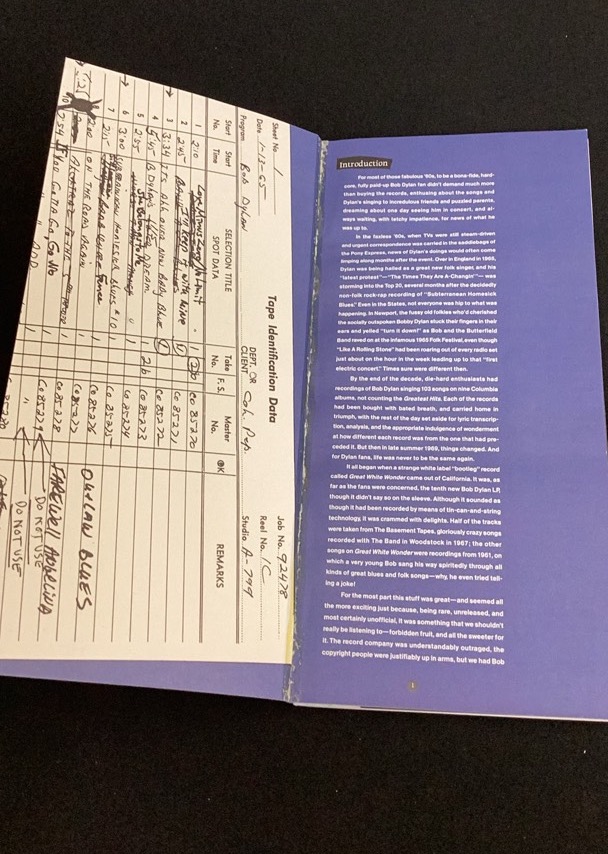 Sheet No. 1
Date 1-13-65
Program Bob Dylan
Tape Identification Data
DEPT. OR
CLIENT
Job No. 92478
Reel No. 1C
Studio A-799
Start
No.
Start
Time
SELECTION TITLE
SPOT DATA
Take
No.
F.S.
Master
No.
OK
REMARKS
1 2:10 Love Minus Zero No Limit 1 Co 85270
2 2:45 I'll Keep It with Mine 1 Co 85271
3 3:34 It's All Over Now Baby Blue 1 Co 85272
4 Bob Dylan's Dream 1 2b Co 85273
5 2:55 She Belongs to Me 1 Co 85274
6 3:00 Subterranean Homesick Blues #10 1 Co 85275
7 2:15 1 Co 85276 OUTLAW BLUES
8 2:00 ON THE ROAD AGAIN 1 Co 85277
1 Co 85278 FAREWELL ANGELINA
10 2:54 You Gotta Go 1 Co 85279 DO NOT USE
DO NOT USE
Introduction
For most of those fabulous '60s, to be a bona-fide, hard-
core, fully paid-up Bob Dylan fan didn't demand much more
than buying the records, enthusing about the songs and
Dylan's singing to incredulous friends and puzzled parents,
dreaming about one day seeing him in concert, and al-
ways waiting, with impatience, for news of what he
was up to.
In the faxless '60s, when TVs were still steam-driven
and urgent correspondence was carried in the saddlebags of
the Pony Express, news of Dylan's doings would often come
limping along months after the event. Over in England in 1965,
Dylan was being hailed as a great new folk singer, and his
"latest protest"—"The Times They Are A-Changin'"—was
storming into the Top 20, several months after the decidedly
non-folk rock-rap recording of "Subterranean Homesick
Blues." Even in the States, not everyone was hip to what was
happening. In Newport, the fussy old folkies who'd cherished
the socially outspoken Bobby Dylan stuck their fingers in their
ears and yelled "turn it down!" as Bob and the Butterfield
Band raved on at the infamous 1965 Folk Festival, even though
"Like A Rolling Stone" had been roaring out of every radio set
just about on the hour in the week leading up to that "first
electric concert." Times sure were different then.
By the end of the decade, die-hard enthusiasts had
recordings of Bob Dylan singing 103 songs on nine Columbia
albums, not counting the Greatest Hits. Each of the records
had been bought with bated breath, and carried home in
triumph, with the rest of the day set aside for lyric transcrip-
tion, analysis, and the appropriate indulgence of wonderment
at how different each record was from the one that had pre-
ceded it. But then in late summer 1969, things changed. And
for Dylan fans, life was never to be the same again.
It all began when a strange white label "bootleg" record
called Great White Wonder came out of California. It was, as
far as the fans were concerned, the tenth new Bob Dylan LP,
though it didn't say so on the sleeve. Although it sounded as
though it had been recorded by means of tin-can-and-string
technology, it was crammed with delights. Half of the tracks
were taken from The Basement Tapes, gloriously crazy songs
recorded with The Band in Woodstock in 1967; the other
songs on Great White Wonder were recordings from 1961, on
which a very young Bob sang his way spiritedly through all
kinds of great blues and folk songs—why, he even tried tell-
ing a joke!
For the most part this stuff was great—and seemed all
the more exciting just because, being rare, unreleased, and
most certainly unofficial, it was something that we shouldn't
really be listening to—forbidden fruit, and all the sweeter for
it. The record company was understandably outraged, the
copyright people were justifiably up in arms, but we had Bob
1